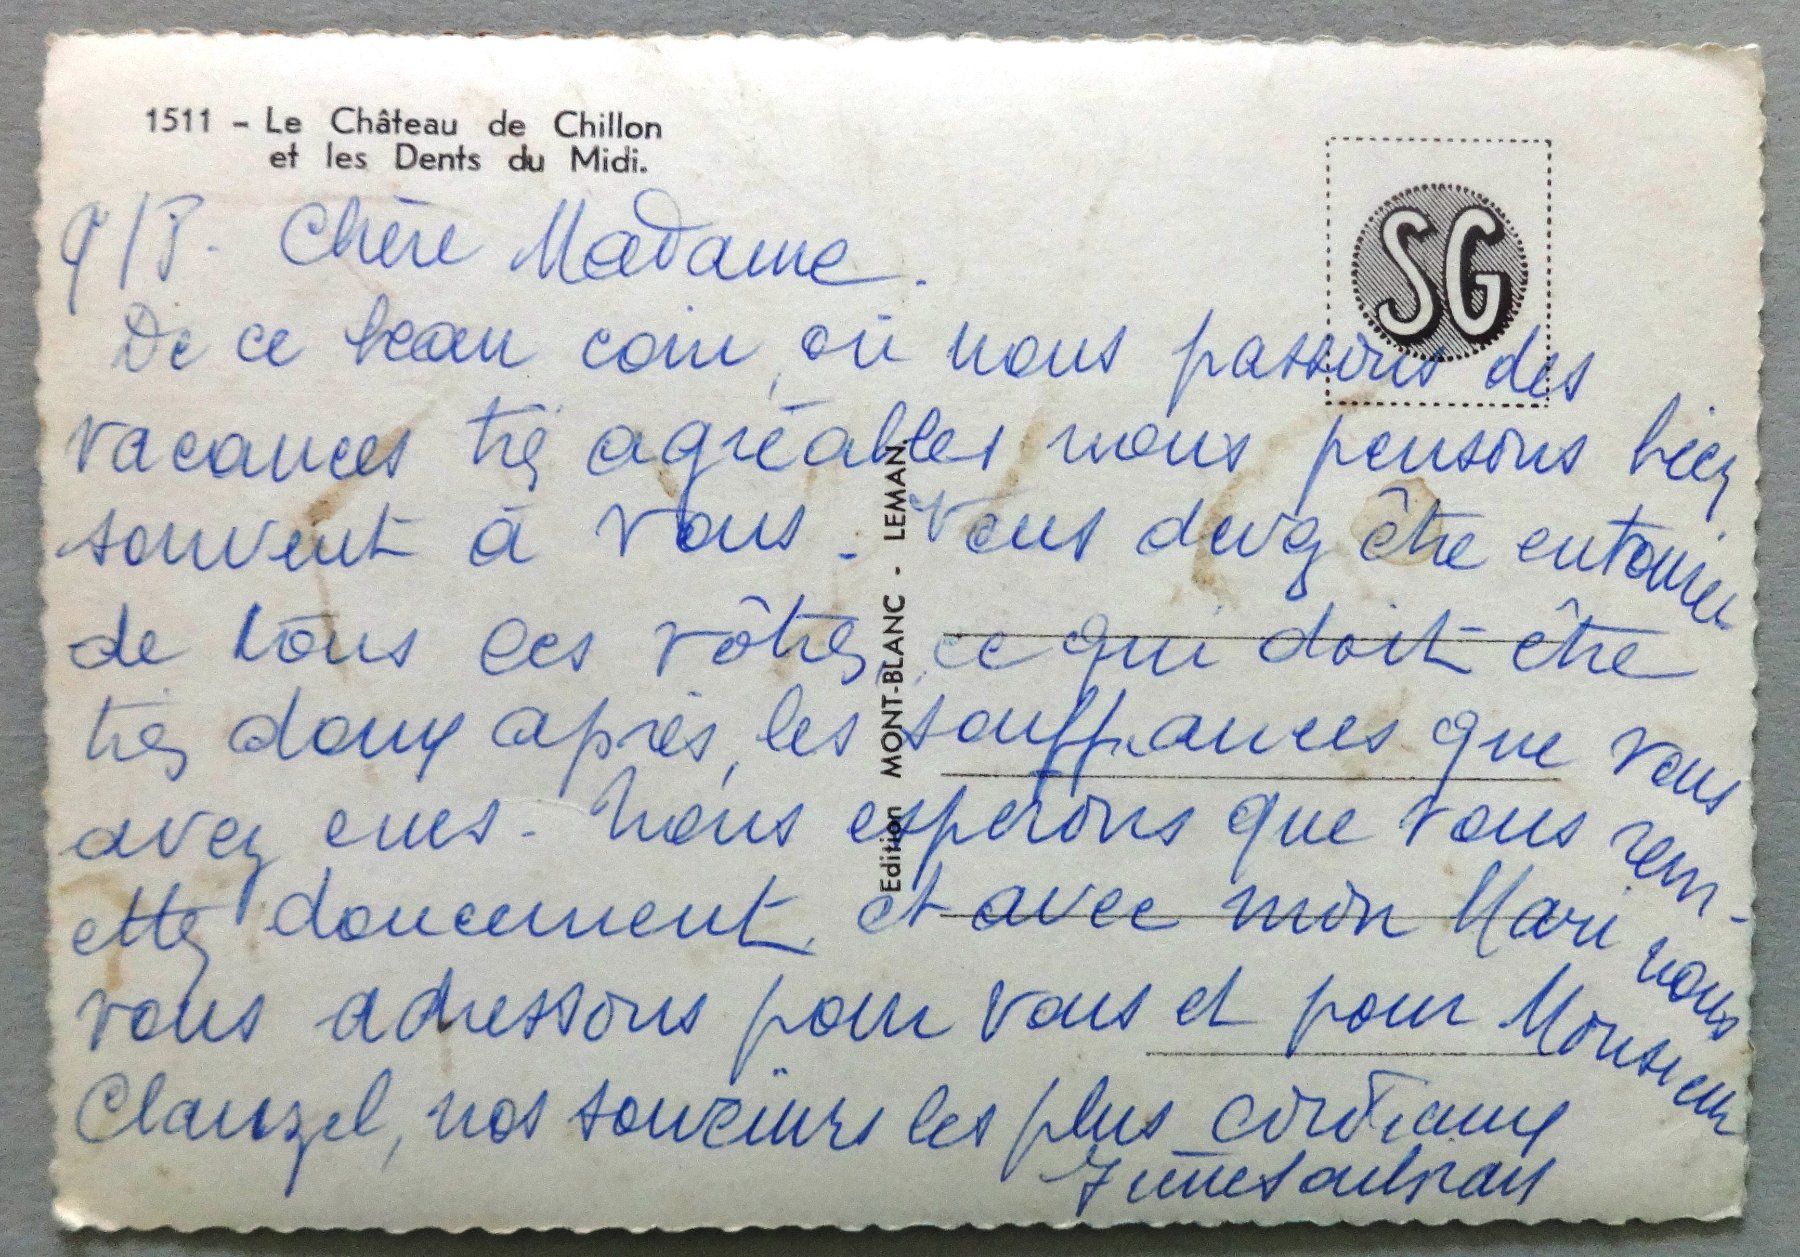 1511 - Le Château de Chillon
et les Dents du Midi.
SG
Chère Madame.
De ce beau coin, où nous passons des
vacances très agréables nous pensons bien
souvent à vous - Vous devez être entourée
de tous les vôtres, ce qui doit être
très doux après, les souffrances que vous
avez eues - Nous espérons que vous rem-
ettez doucement, et avec mon Mari nous
vous adressons pour vous et pour Monsieur
Clauzel, nos souvenirs les plus cordiaux
Edition MONT-BLANC - LEMAN.